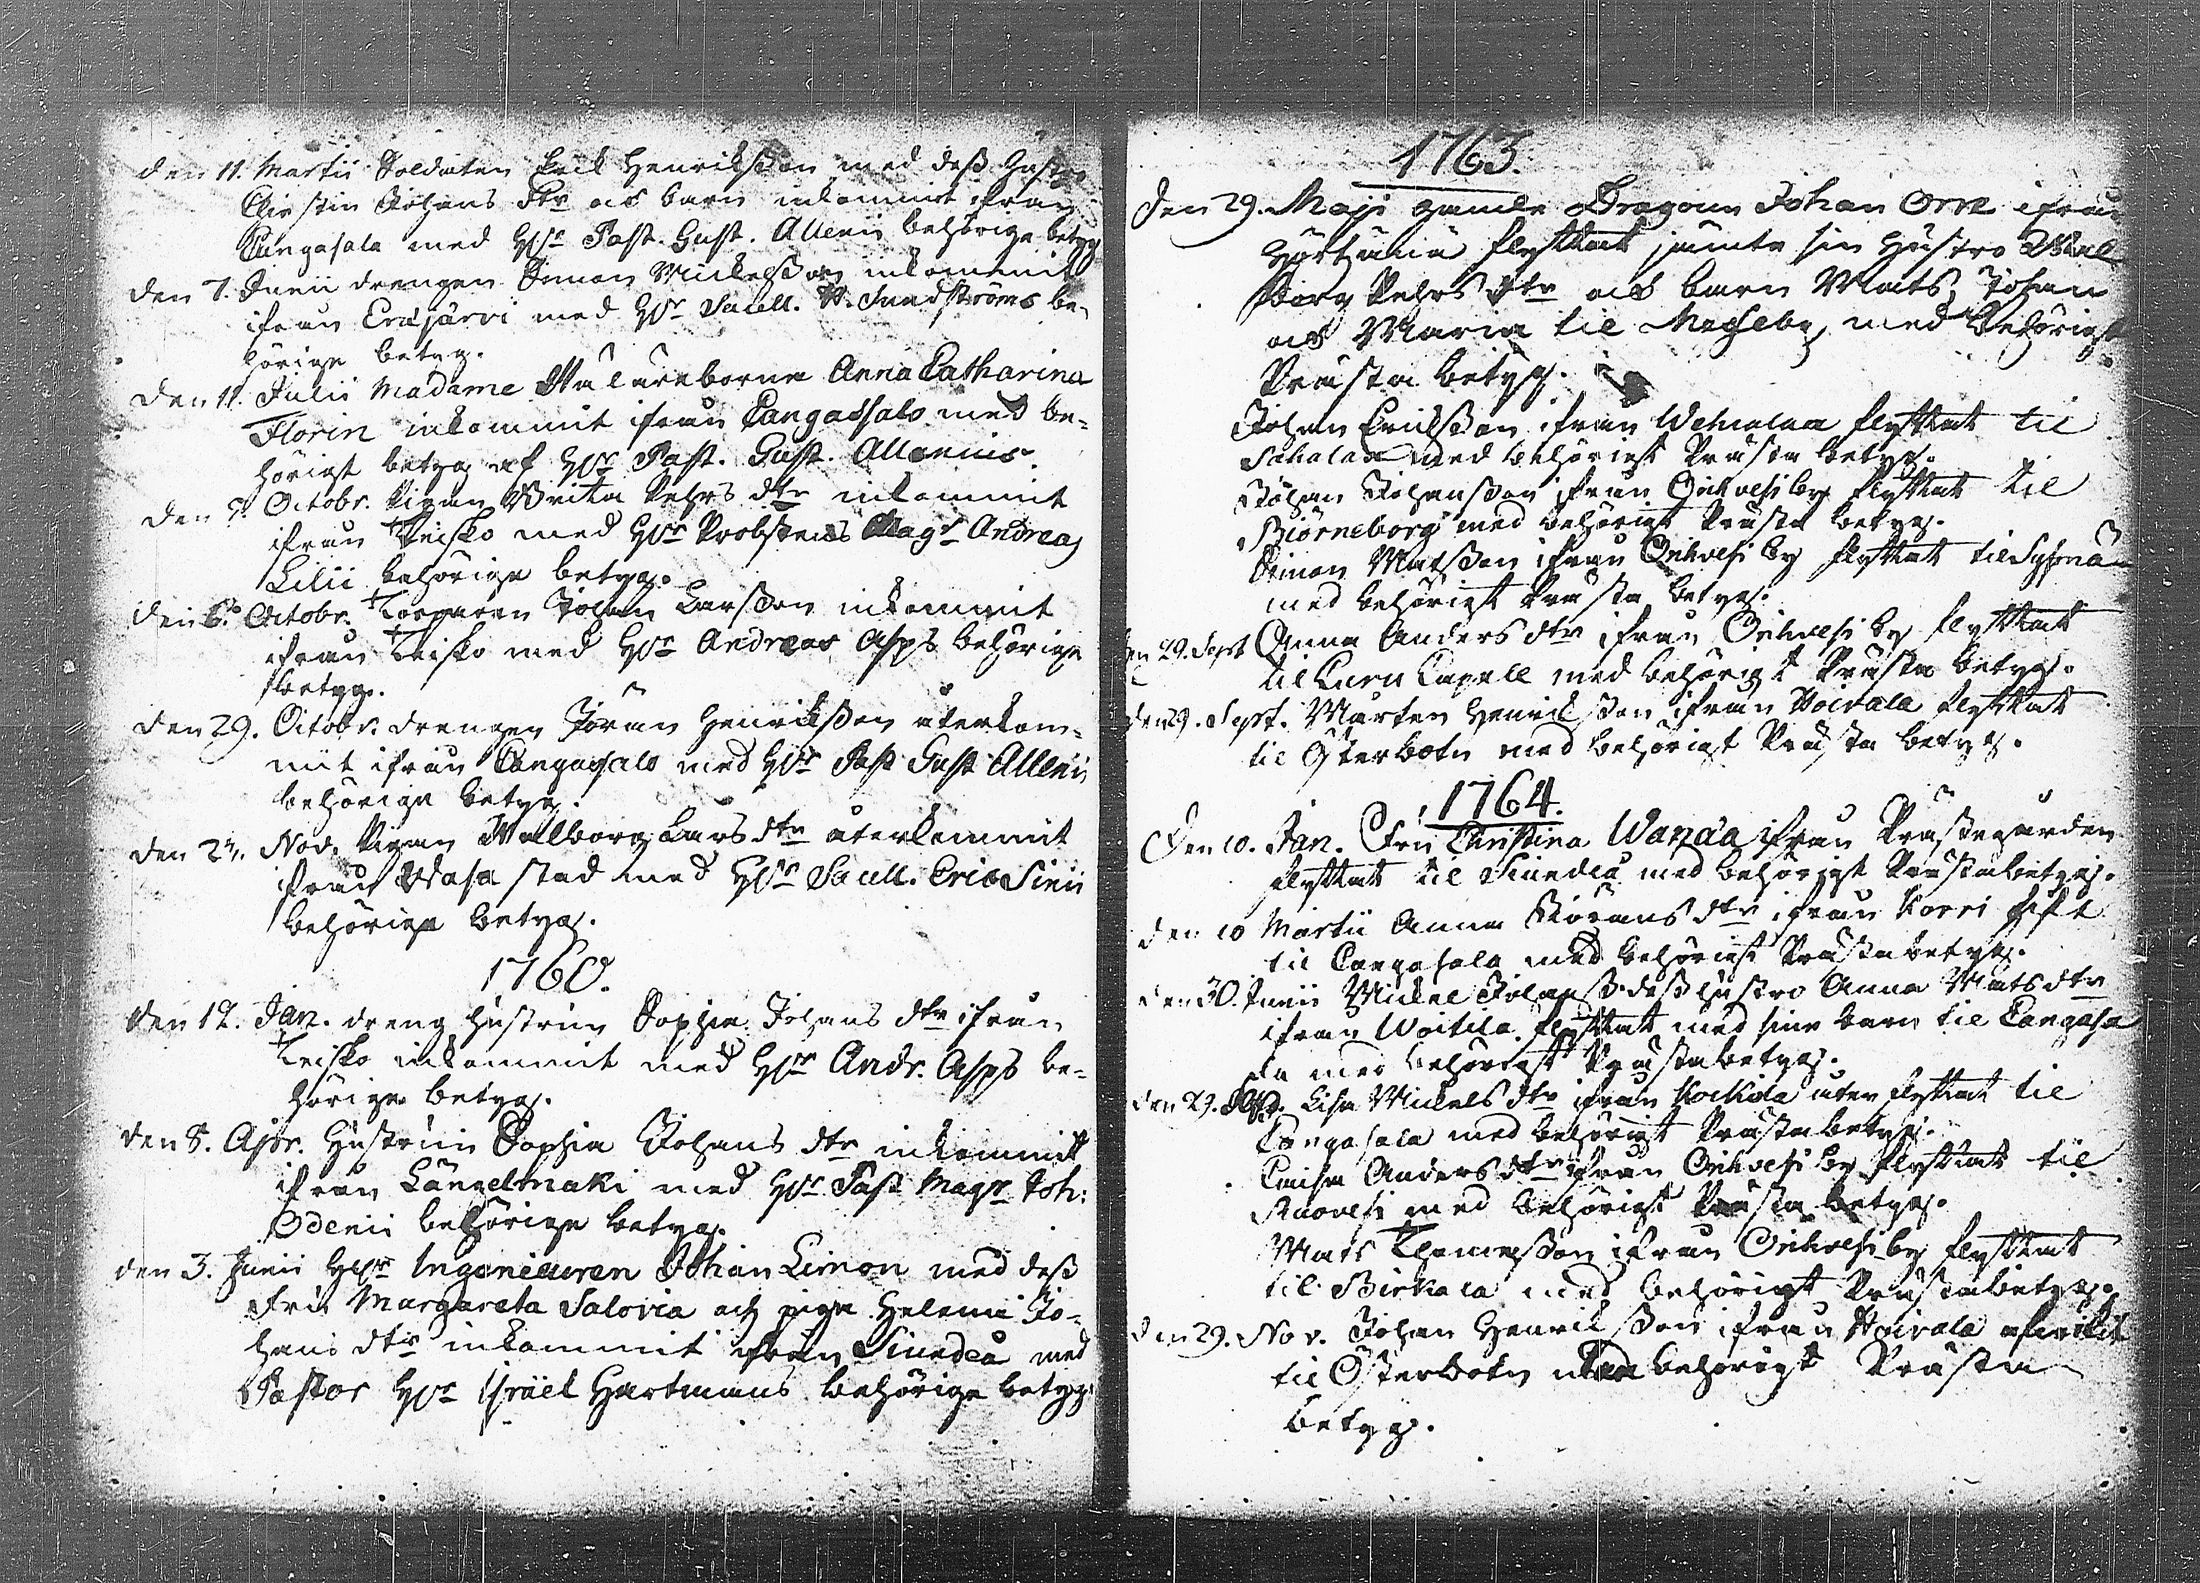 den 11. Martii Soldaten Erik Henriksson med dess Hustro
Kirstin Johans dtr ock barn inkommit ifrån
Cangasala med Hr Past. Gust. Allenii behörige betyg
den 7. Junii drengen Simon Mickelsson inkommit
ifrån Eräjärvi med Hr Sacell. Sundströms be-
hörige betyg.
den 11. Julii Madame Anna Catharina
Florin inkommit ifrån Cangassalo med be-
hörigt betyg af Hr Past. Gust. Allenius.
den Octobr. Pigan Brita Pehrs dtr inkommit
ifrån Teisko med Hr Probstens Magr Andreas
Lilii behörige betyg.
den 6. Octobr. Torparen Johan Larsson inkommit
ifrån Teisko med Hr Andreas Asps behörige
betyg.
den 29. Octobr. drengen Jöran Henriksson återkom-
mit ifrån Cangasalo med Hr Past Gust Allenii
behörige betyg.
den Nov. Pigan Wallborg Lars dtr återkommit
ifrån Wasa stad med Hr Sacell. Eric Sinii
behörige betyg.
1760.
den 12. Jan. dreng hustrun Sophia Johans dtr ifrån
Teisko inkommit med Hr Andr. Asps be-
hörige betyg.
den 8. Apr. Hustrun Sophia Johans dtr inkommit
ifrån Längelmäki med Hr Past Magr Joh:
Odenii behörige betyg.
den 3. Junii Hr Ingenieuren Johan Limon med dess
Fru Margareta Salovia och pigan Helena Jo-
hans dtr inkommit ifrån Siundeå med
Pastor Hr Israel Hartmans behörige betyg.
1763.
Den 29. Maji gamle Dragoun Johan Orre ifrån
flyttat jämte sin Hustro Wal
borg Pehrs dtr ock barn Mats, Johan
ock Maria til Messeby, med behörigt
Prästa betyg.
Johan Eriksson ifrån flyttat til
Sahalax med behörigt Prästa betyg.
Johan Johansson ifrån Orihvesi by flyttat til
Biörneborg med behörigt Prästa betyg.
Simon Matsson ifrån Orihvesi by flyttat til Sysmä
med behörigt Prästa betyg.
den 29. Sept Anna Anders dtr ifrån Orihvesi by flyttat
til Kuru Capell med behörigt Prästa betyg.
den 29. Sept. Mårten Henriksson ifrån Hoivala flyttat
til Österbotn med behörigt Prästa betyg.
1764.
Den 10. Jan. Fru Christina Wanda ifrån Prästegården
flyttat til Siundeå med behörigt Prästabetyg.
den 10 Martii Anna Jörans dtr ifrån Korri gift
til Cangasala med behörigt Prästabetyg.
den 30. Junii Mickel Johanss. dess hustro Anna Mats dtr
ifrån Woitila flyttat med sine barn til Cangasa
la med behörigt Prästabetyg.
den 29. Lisa Mickels dtr ifrån Kockila flyttat til
Cangasala med behörigt Prästabetyg.
Caisa Anders dtr ifrån Orihvesi by flyttat til
Ruovesi med behörigt Prästa betyg.
Mats Klemetsson ifrån Orihvesi by flyttat
til Birkala med behörigt Prästabetyg.
den 29. Nov. Johan Henriksson ifrån Hoivala
til Österbotn med behörigt Prästa
betyg.